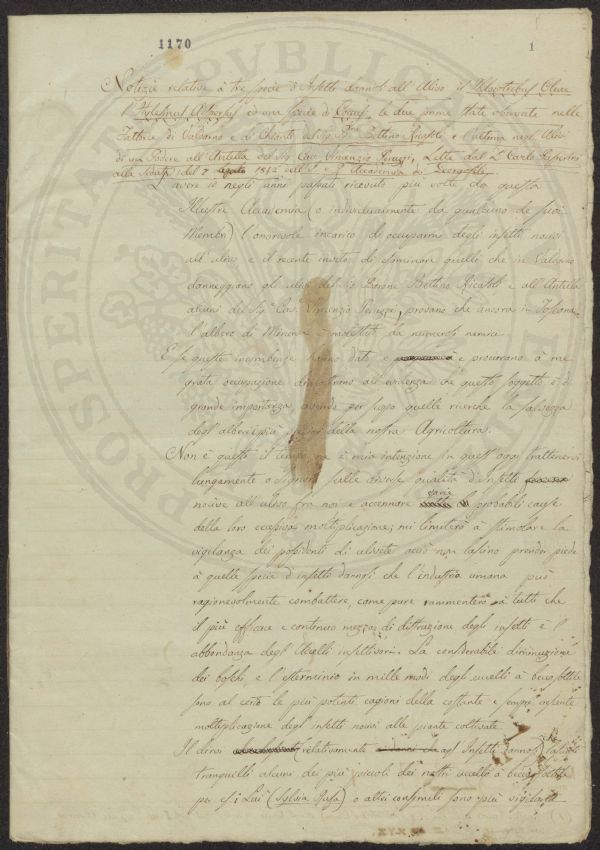 1170
1
Notizie relative a tre specie di Insetti dannosi all' Ulivo il Phloeotribus Oleae
l' Hylesinus Oleiperda ed una specie di Coccus, le due prime state osservate nelle
Fattorie di Valdarno e del Chianti del Sig. Bne Bettino Ricasoli, e l'ultima negli Ulivi
di un Podere all' Antella del Sig. Cav. Vincenzio Peruzzi, Lette dal D. Carlo Passerini
alla Seduta del 7 agosto 1842 dell' I. e R. Accademia dei Georgofili.
L' avere io negli anni passati ricevuto più volte da questa
Illustre Accademia (o individualmente da qualcuno de suoi
Membri) l' onorevole incarico di occuparmi degli insetti nocivi
all' ulivo e il recente invito di esaminare quelli che in Valdarno
danneggiono gli ulivi del Sig. Barone Bettino Ricasoli e all' Antella
alcuni del Sig. Cav. Vincenzio Peruzzi, provano che ancora in Toscana
l' albero di Minerva è molestato da numerosi nemici.
E se queste incumbenze hanno dato e procurano à me
grata occupazione dimostrano all' evidenza che questo soggetto è di
grande importanza avendo per scopo quelle ricerche la salvezza
degli alberi i più preziosi della nostra Agricoltura.
Non è questo il tempo ne è mia intenzione in quest' oggi trattenervi
lungamente o Signori sulle diverse qualità d' insetti
nocive all' ulivo fra noi e accennare varie probabili cause
della loro eccessiva moltiplicazione; mi limiterò à stimolare la
vigilanza dei possidenti di ulivete acciò non lascino prender piede
à quelle specie d' insetti dannosi che l' industria umana può
ragionevolmente combattere, come pure rammenterò à tutti che
il più efficace e continuo mezzo di distruzione degli insetti è l'
abbondanza degli Uccelli insettivori. La considerabile diminuzione
dei boschi, e l' esterminio in mille modi degli uccelli à becco sottile
sono al certo le più potenti cagioni della costante e sempre crescente
moltiplicazione degli insetti nocivi alle piante coltivate.
Il dirsi (relativamente agl' Insetti dannosi) lasciate
tranquilli alcuni dei più piccoli dei nostri uccelli à becco sottile
per es. i Luì (Sylvia Rufa) o altri consimili sono più vigilanti